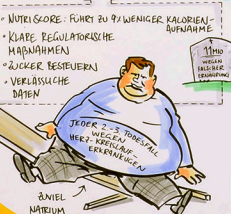 • NUTRISCORE: FÜHRT ZU 4% WENIGER KALORIEN-
AUFNAHME
• KLARE REGULATORISCHE
MAßNAHMEN
• ZUCKER BESTEUERN
• VERLÄSSLICHE
DATEN
11 MIO
WEGEN
FALSCHER
ERNÄHRUNG
JEDER 2.-3. TODESFALL
WEGEN
HERZ-KREISLAUF-
ERKRANKUNGEN
ZUVIEL
NATRIUM